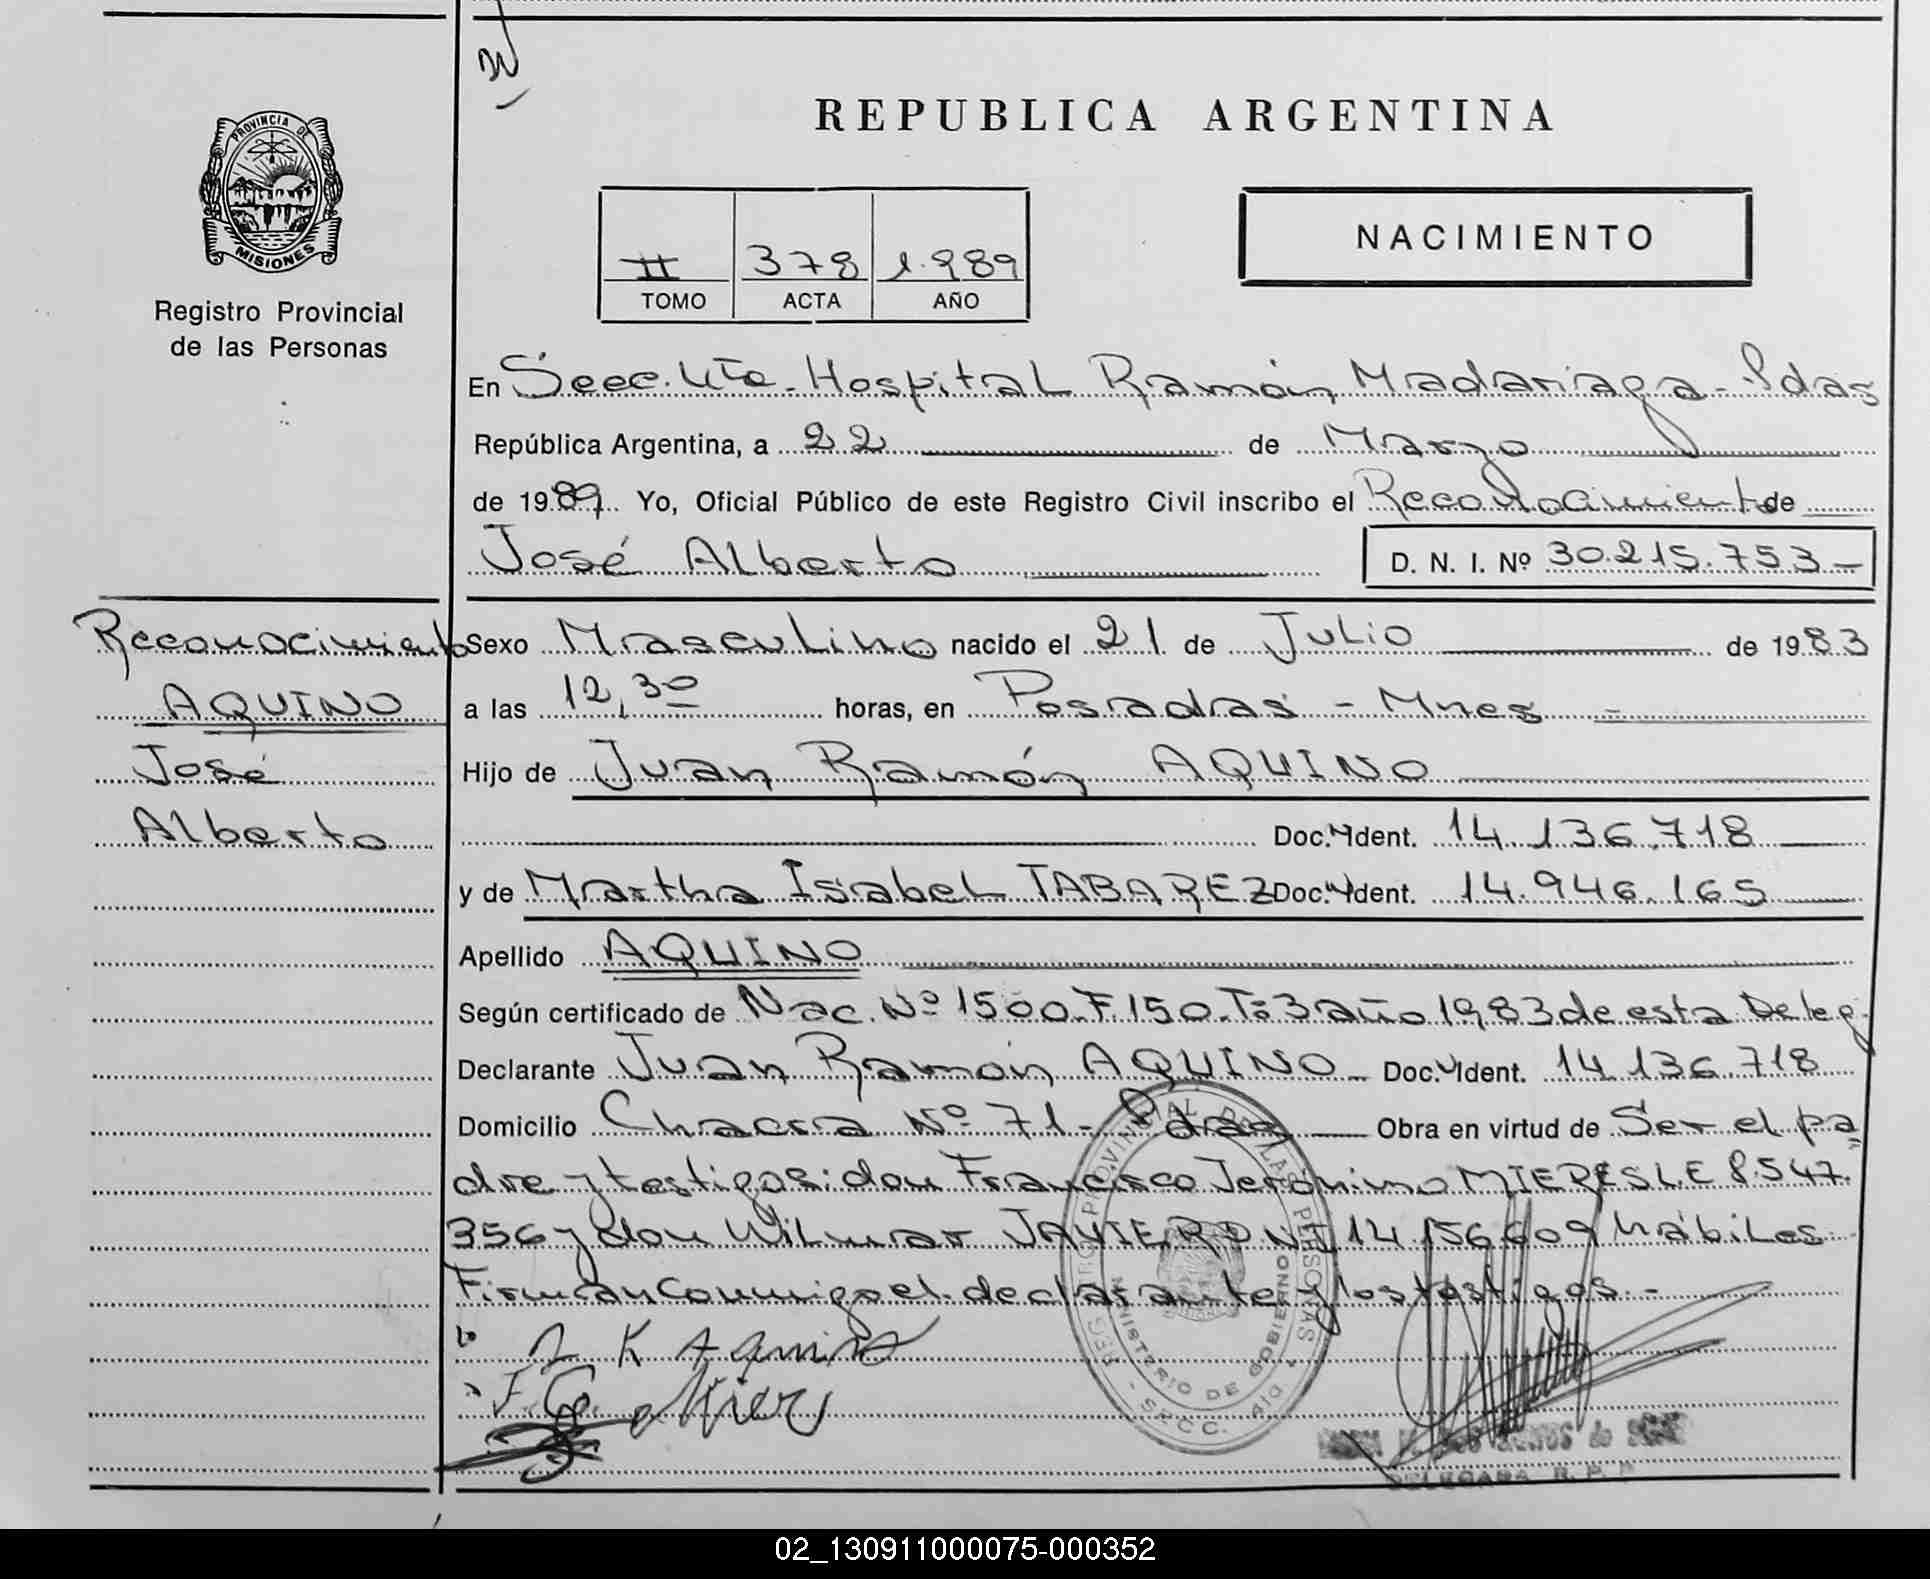 PROVINCIA DE
MISIONES
Registro Provincial
de las Personas
REPUBLICA ARGENTINA
II 378 1.989
TOMO ACTA AÑO
NACIMIENTO
En Secc. Hospital Ramón Madariaga - Pdas
República Argentina, a 22 de Marzo
de 1989. Yo, Oficial Público de este Registro Civil inscribo el Reconocimiento de
José Alberto D. N. I. Nº 30.215.753-
Reconocimiento
AQUINO
José
Alberto
Sexo Masculino nacido el 21 de Julio de 1983
a las 12,30 horas, en Posadas - Mnes -
Hijo de Juan Ramón AQUINO
Doc. Ident. 14.136.718
y de Martha Isabel TABAREZ Doc. Ident. 14.946.165
Apellido AQUINO
Según certificado de Nac. Nº 1500. F. 150. Tº 3 año 1983 de esta Deleg.
Declarante Juan Ramón AQUINO - Doc. Ident. 14.136.718
Domicilio Chacra Nº 71 - Pdas Obra en virtud de Ser el pa
dre y testigos: don Francisco Jerónimo MIERES L.E 8.547.
356 y don Wilmar JAVIER D N I 14.156.609 hábiles.
Firman conmigo el declarante y los testigos. -
REG. PROVINCIAL DE LAS PERSONAS
MINISTERIO DE GOBIERNO
DELEGADA R. P. P
02_130911000075-000352